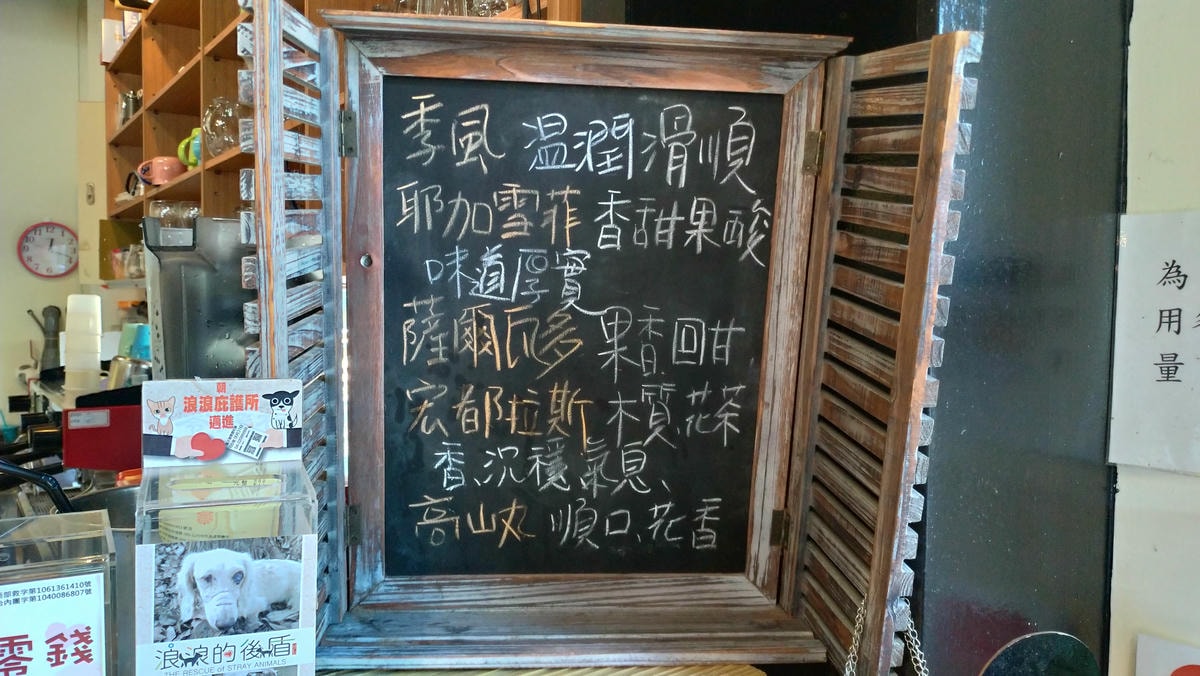 季風 溫潤滑順
耶加雪菲 香甜果酸
味道厚實
薩爾瓦多 果香回甘
宏都拉斯 木質、花茶
香、沉穩氣息、
高山丸 順口、花香
朝
浪浪庇護所
邁進
浪浪的後盾
THE RESCUE of STRAY ANIMALS
部救字第1061361410號
台內團字第1040086807號
零錢
為
用
量